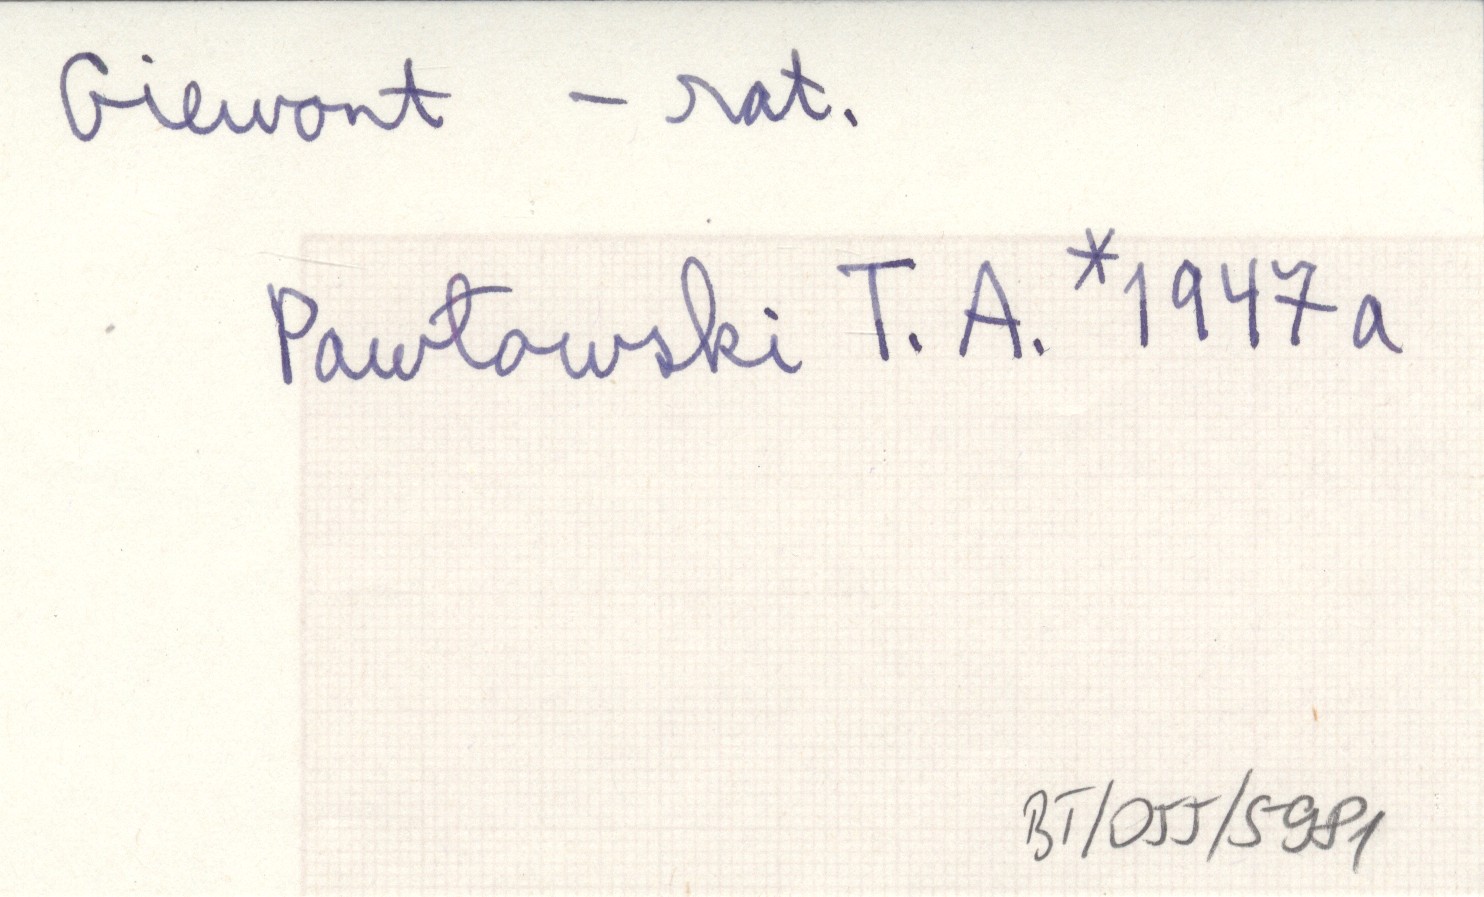 Giewont – rat.
Pawłowski T. A. *1947a
BT/055/5981